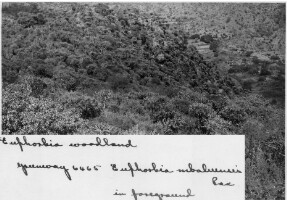 Euphorbia woodland
Greenway 6065 Euphorbia mbaluensis
Pax
in foreground